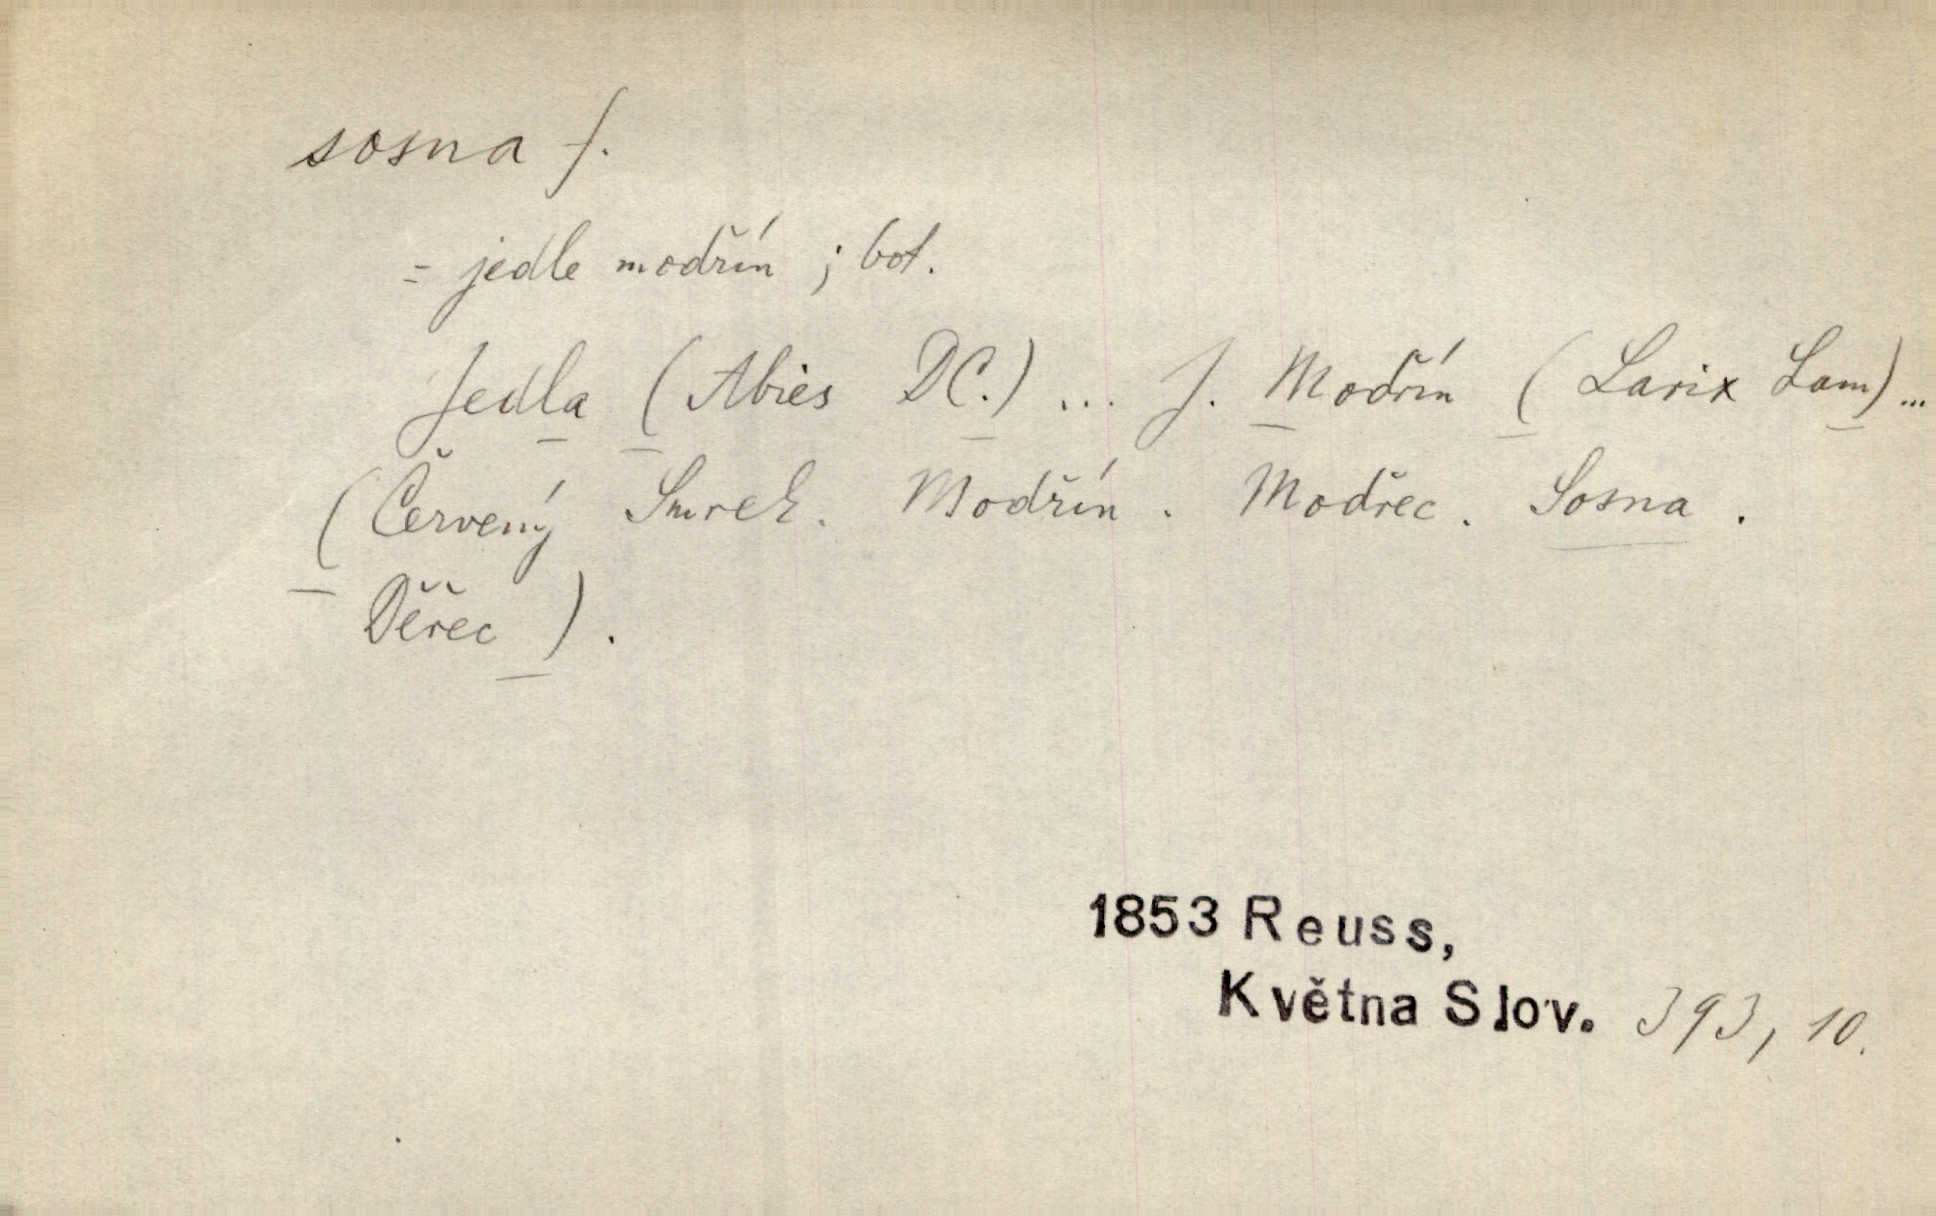 sosna f.
= jedle modřín ; bot.
Jedla (Abies DC.) ... J. Modřín (Larix Lam) ...
(Červený Smrek. Modřín. Modřec. Sosna.
Děřec).
1853 Reuss,
Května Slov. 393, 10.